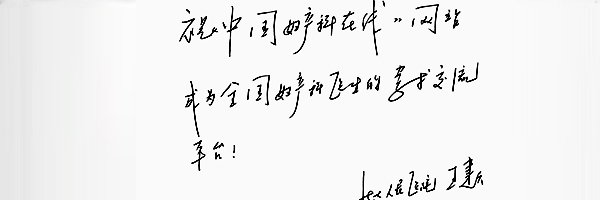 祝“中国妇产科在线”网站
成为全国妇产科医生的学术交流
平台!
人民医院 王建六